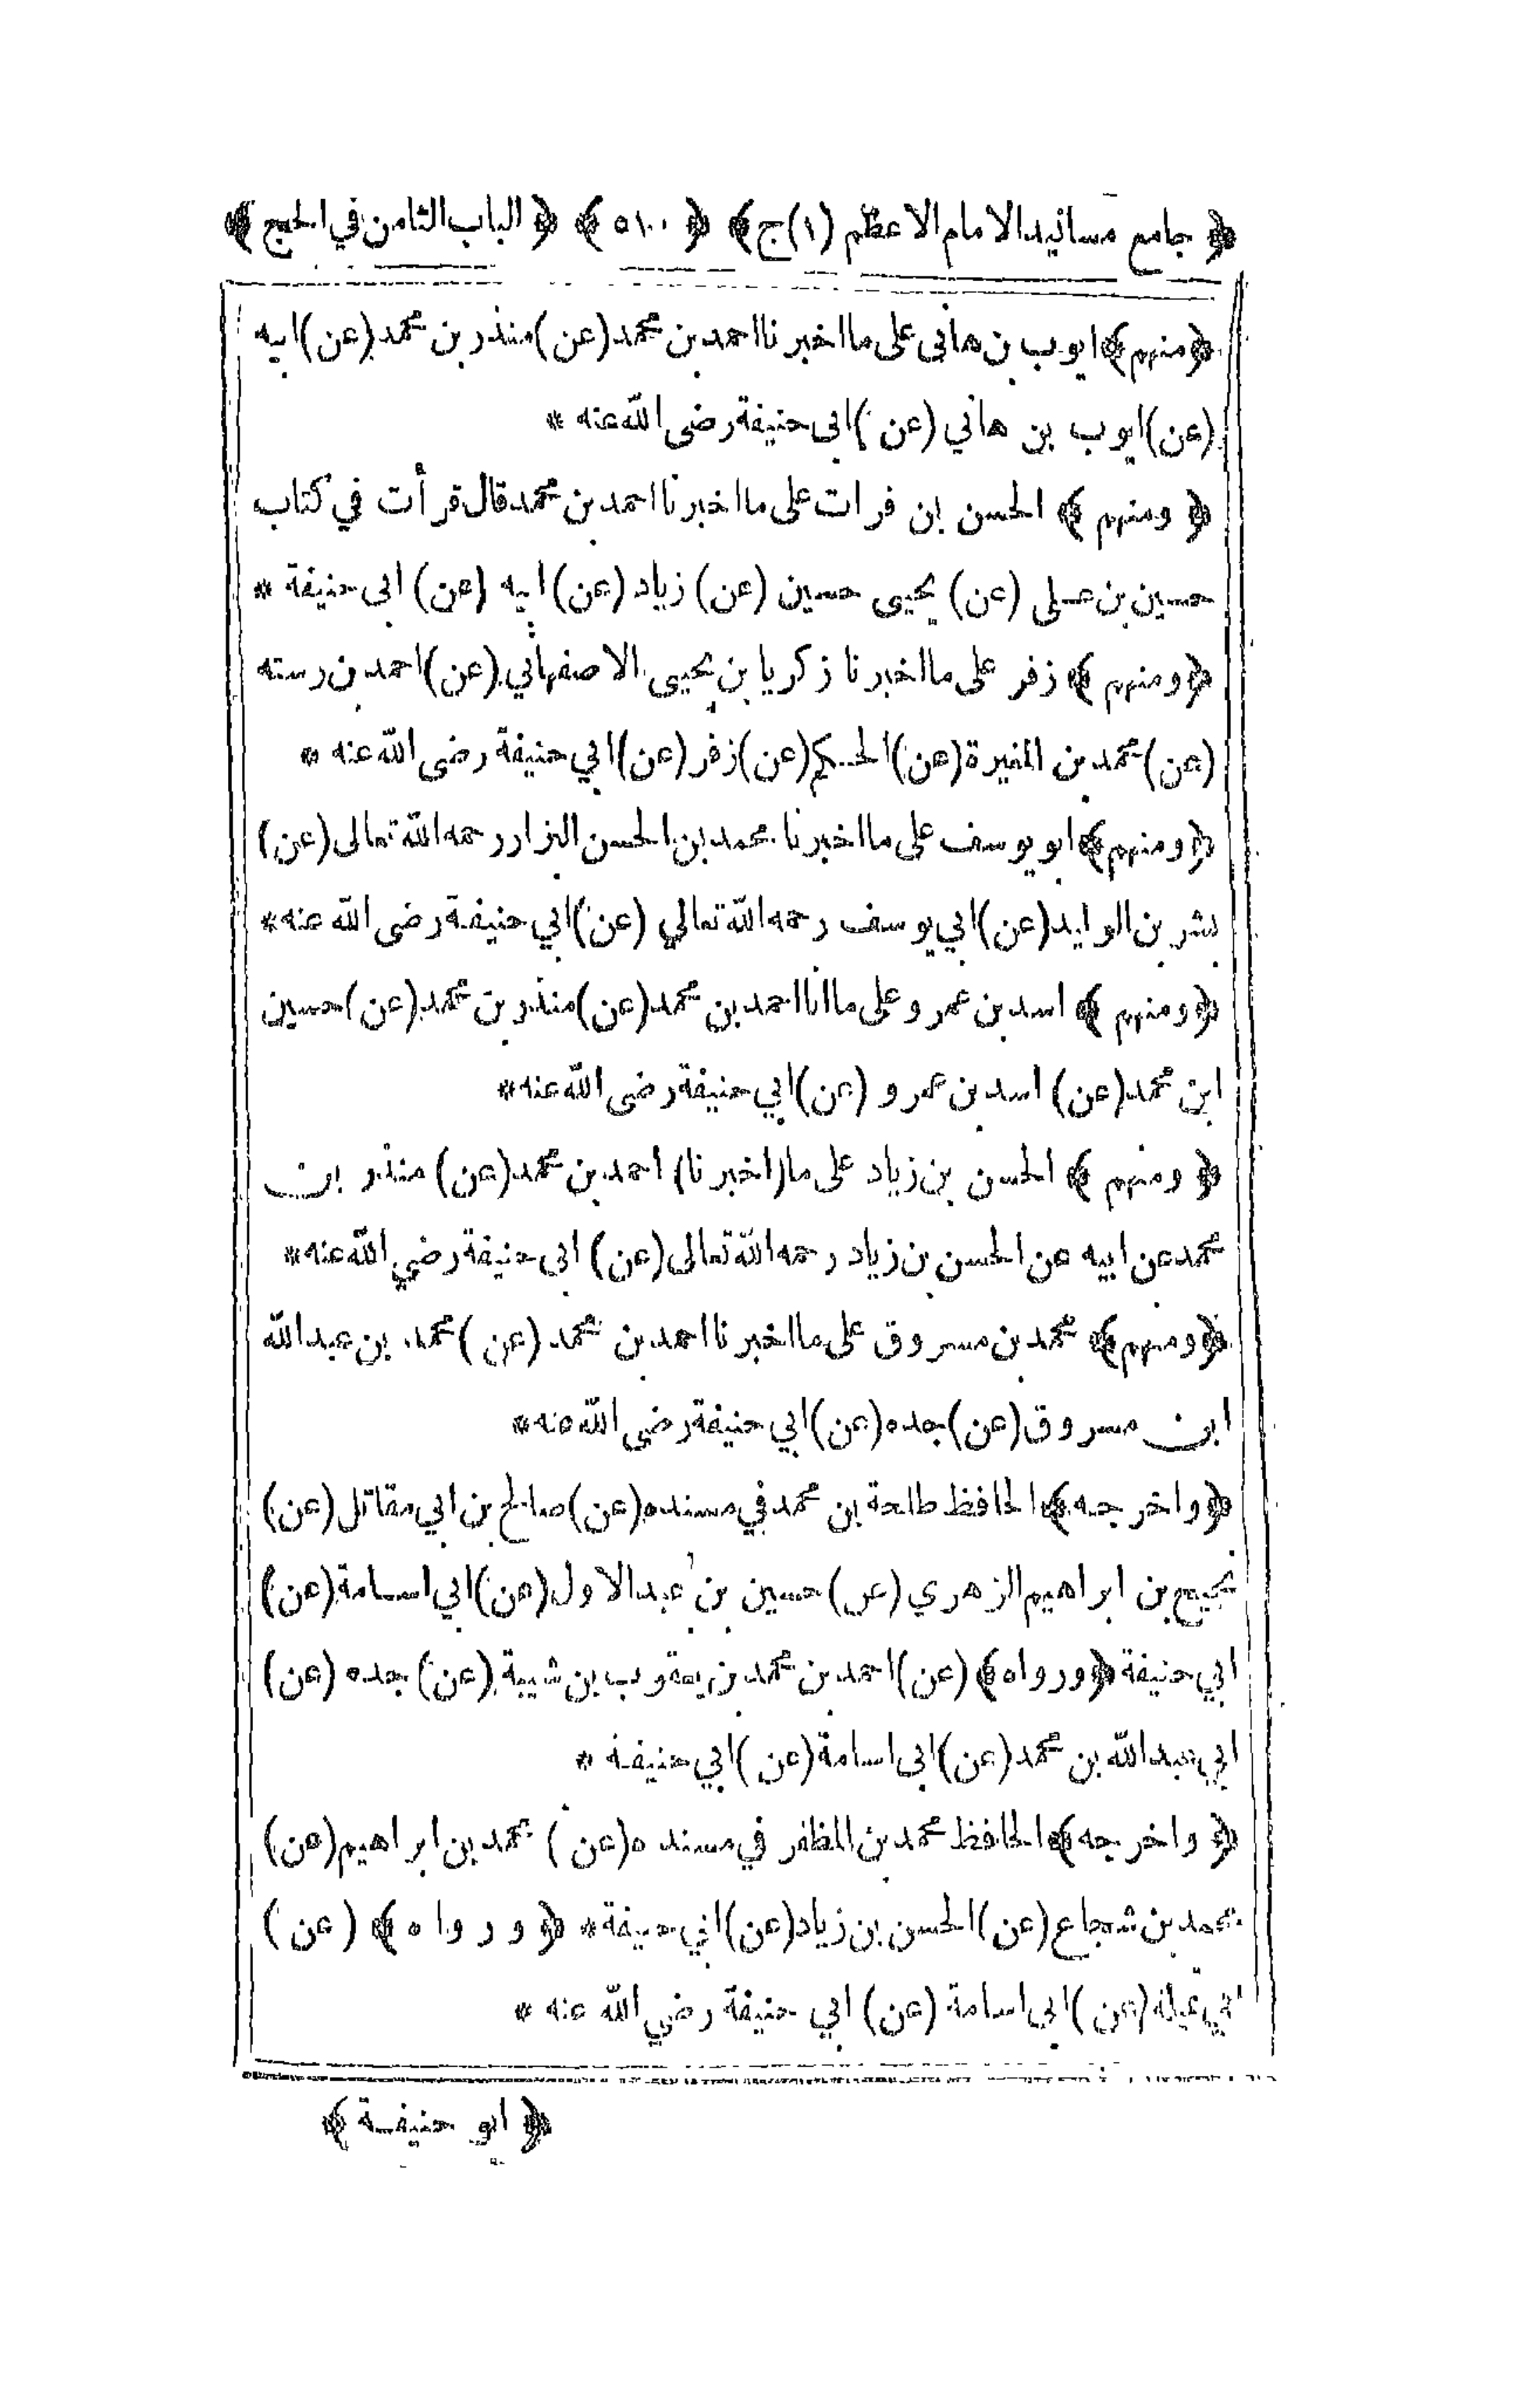 ﴿ جامع مسانيد الامام الاعظم (١) ج﴾ ﴿ ٥١٠ ﴾ ﴿ الباب الثامن في الحج ﴾
﴿منهم﴾ ايوب بن هانى على ما اخبرنا احمد بن محمد (عن) منذر بن محمد (عن) ابيه
(عن) ايوب بن هاني (عن) ابى حنيفة رضى الله عنه *
﴿ ومنهم ﴾ الحسن ابن فرات على ما اخبرنا احمد بن محمد قال قرأت في كتاب
حسين بن على (عن) يحيى حسين (عن) زياد (عن) ابيه (عن) ابى حنيفة *
﴿ ومنهم ﴾ زفر على ما اخبرنا زكريا بن يحيى الاصفهاني (عن) احمد بن رسته
(عن) محمد بن المغيرة (عن) الحكم (عن) زفر (عن) ابي حنيفة رضى الله عنه *
﴿ ومنهم ﴾ ابو يوسف على ما اخبرنا محمد بن الحسن البزار رحمه الله تعالى (عن)
بشر بن الوليد (عن) ابي يوسف رحمه الله تعالي (عن) ابي حنيفة رضى الله عنه *
﴿ ومنهم ﴾ اسد بن عمرو على ما انا احمد بن محمد (عن) منذر بن محمد (عن) حسين
ابن محمد (عن) اسد بن عمرو (عن) ابي حنيفة رضى الله عنه *
﴿ ومنهم ﴾ الحسن بن زياد على ما (اخبرنا) احمد بن محمد (عن) منذر بن
محمد عن ابيه عن الحسن بن زياد رحمه الله تعالى (عن) ابى حنيفة رضي الله عنه *
﴿ ومنهم ﴾ محمد بن مسروق على ما اخبرنا احمد بن محمد (عن) محمد بن عبدالله
ابن مسروق (عن) جده (عن) ابي حنيفة رضى الله عنه *
﴿ واخرجه ﴾ الحافظ طلحة بن محمد في مسنده (عن) صالح بن ابي مقاتل (عن)
نجيح بن ابراهيم الزهري (عن) حسين بن عبدالاول (عن) ابي اسامة (عن)
ابي حنيفة ﴿ ورواه ﴾ (عن) احمد بن محمد بن يعقوب بن شيبة (عن) جده (عن)
ابي عبدالله بن محمد (عن) ابى اسامة (عن) ابي حنيفة *
﴿ واخرجه ﴾ الحافظ محمد بن المظفر في مسنده (عن) محمد بن ابراهيم (عن)
محمد بن شجاع (عن) الحسن بن زياد (عن) ابي حنيفة * ﴿ ورواه ﴾ (عن)
(عن) ابى اسامة (عن) ابي حنيفة رضي الله عنه *
﴿ ابو حنيفة ﴾